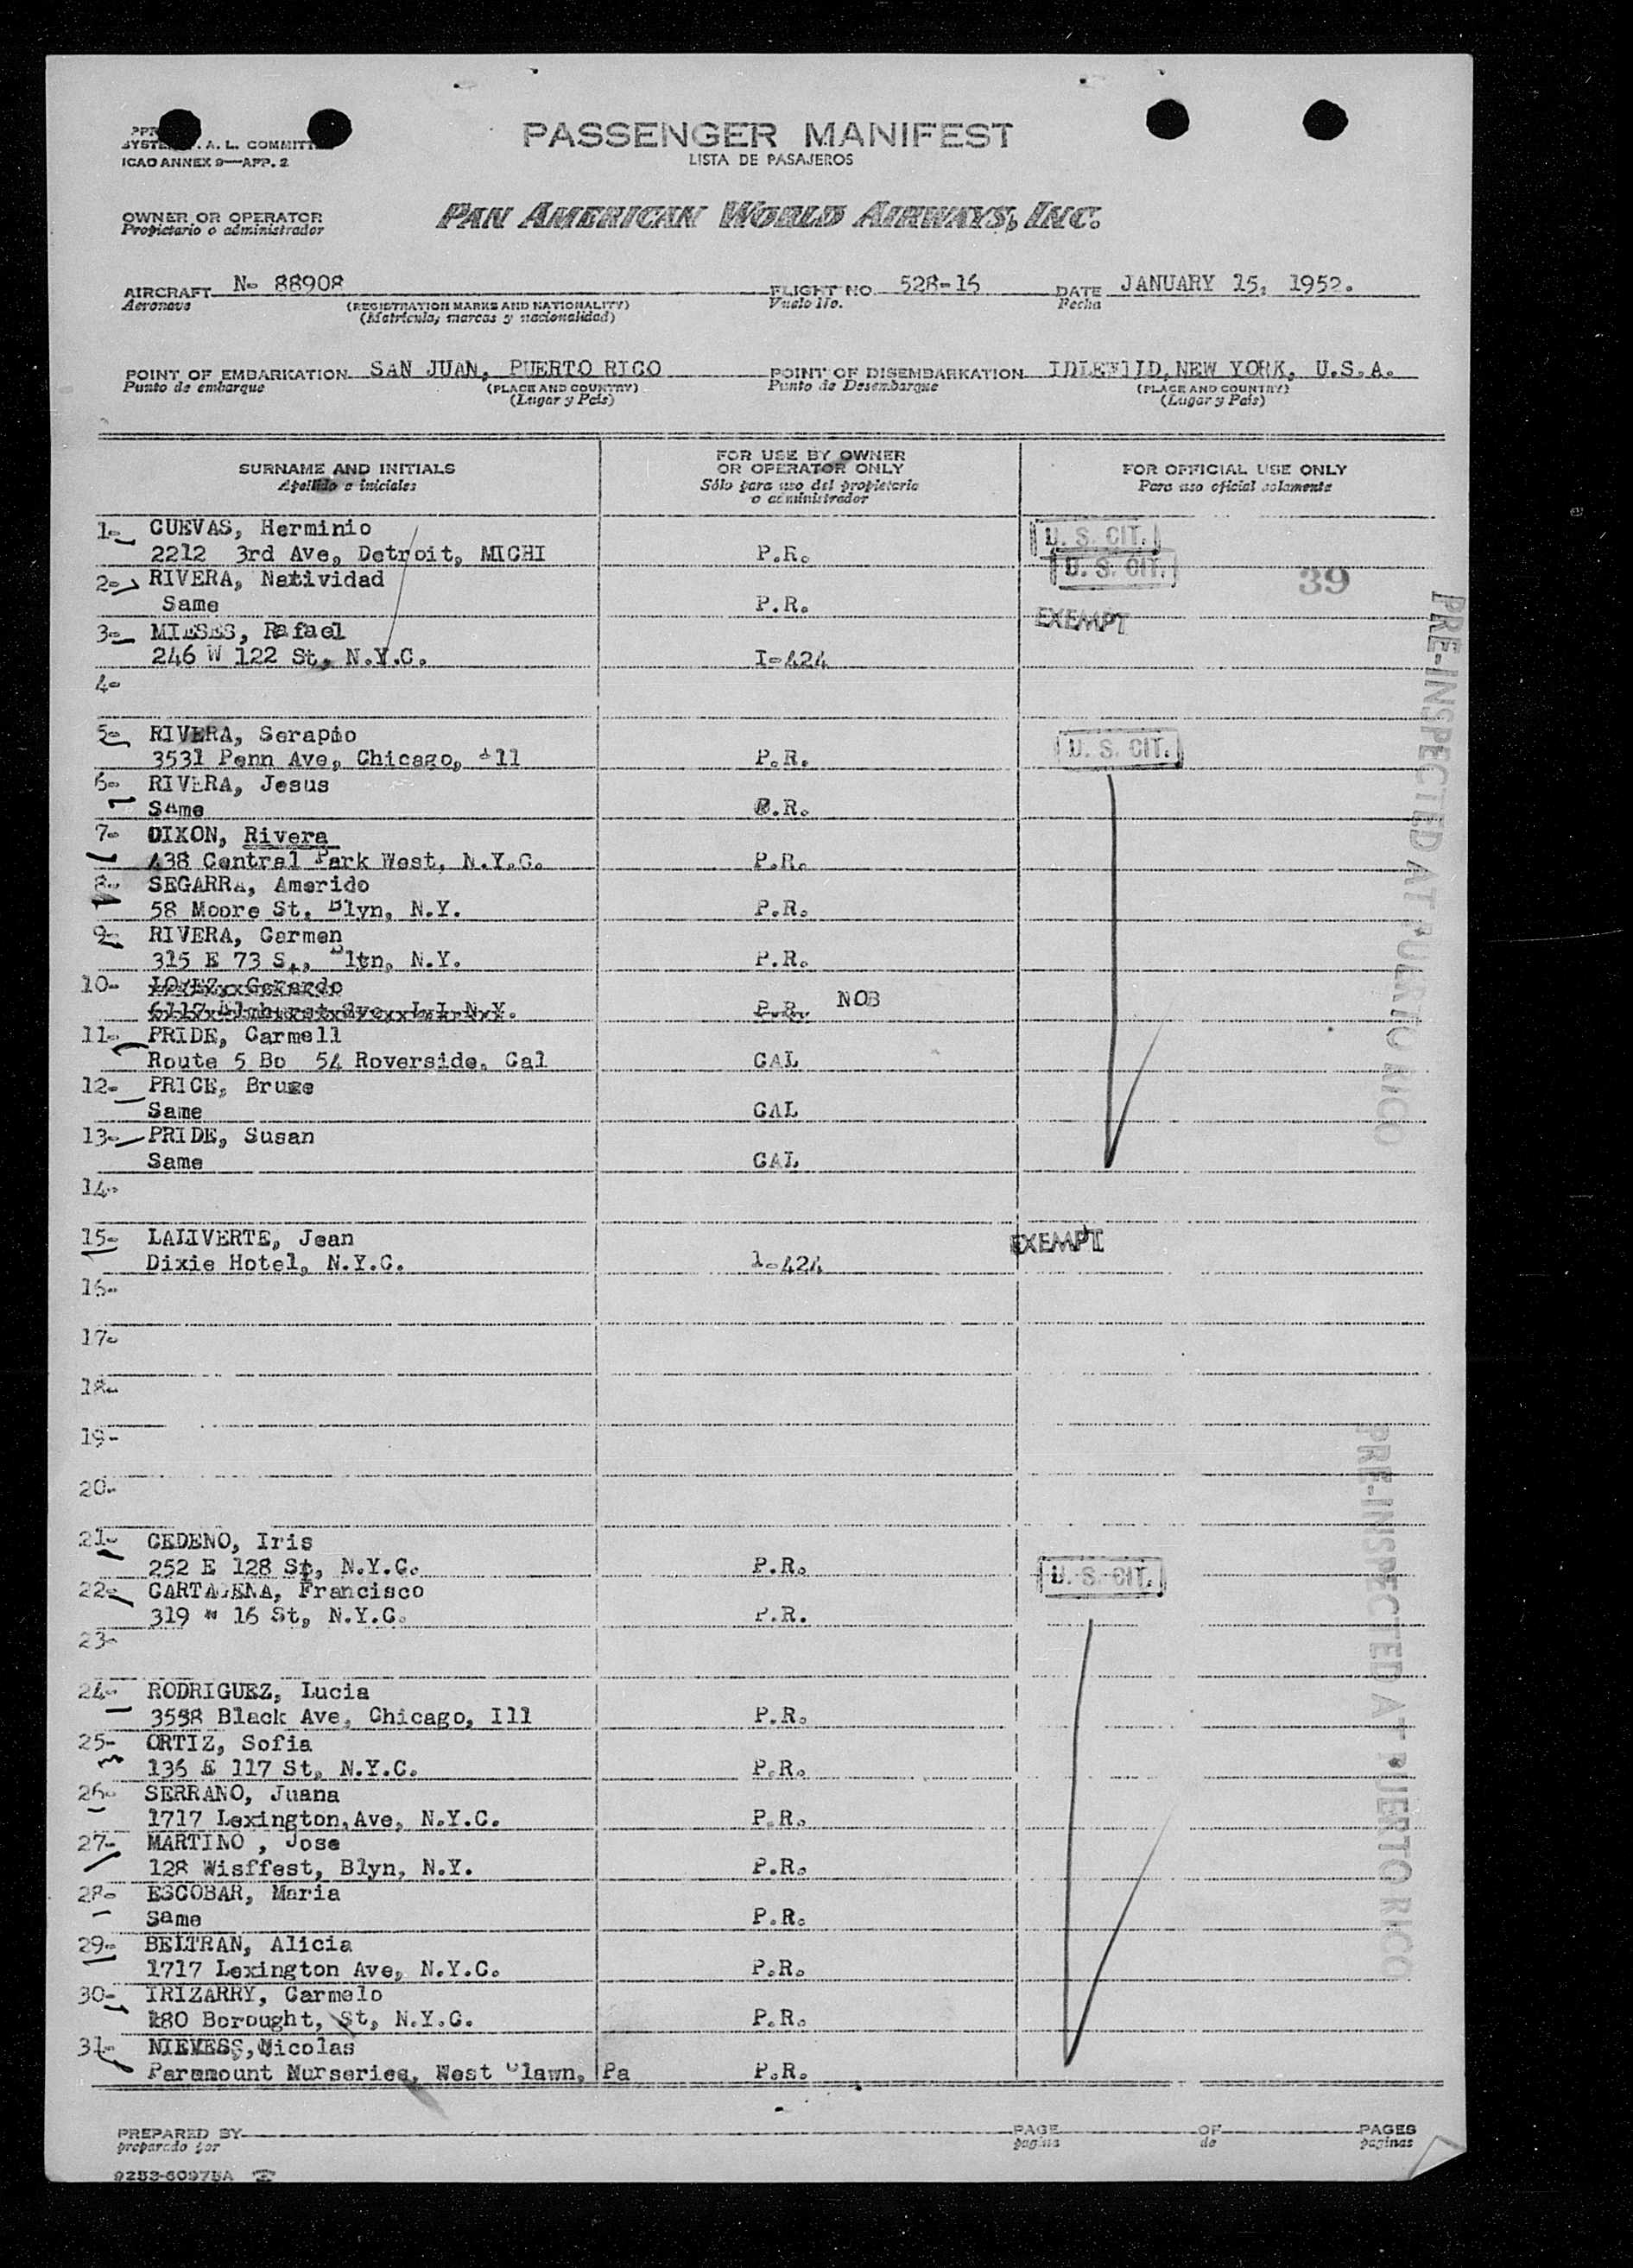 PASSENGER MANIFEST
LISTA DE PASAJEROS
. A. L. COMMITT
ICAO ANNEX 9—APP. 2
OWNER OR OPERATOR
Propietario o administrador
PAN AMERICAN WORLD AIRWAYS, INC.
AIRCRAFT N- 88908 FLIGHT NO. 528-16 DATE JANUARY 15, 1952.
Aeronave (REGISTRATION MARKS AND NATIONALITY) Vuelo No. Fecha
(Matricula, marcas y nacionalidad)
POINT OF EMBARKATION SAN JUAN, PUERTO RICO POINT OF DISEMBARKATION IDLEWILD, NEW YORK, U.S.A.
Punto de embarque (PLACE AND COUNTRY) Punto de Desembarque (PLACE AND COUNTRY)
(Lugar y País) (Lugar y País)
SURNAME AND INITIALS FOR USE BY OWNER OR OPERATOR ONLY FOR OFFICIAL USE ONLY
Apellido e iniciales Sólo para uso del propietario o administrador Para uso oficial solamente
1- CUEVAS, Herminio U. S. CIT.
2212 3rd Ave, Detroit, MICHI P.R. U. S. CIT.
2- RIVERA, Natividad 39
Same P.R. EXEMPT
3- MIESES, Rafael
246 W 122 St, N.Y.C. I-424
4-
5- RIVERA, Serapio U. S. CIT.
3531 Penn Ave, Chicago, Ill P.R.
6- RIVERA, Jesus
Same P.R.
7- DIXON, Rivera
438 Central Park West, N.Y.C. P.R.
8- SEGARRA, Amerido
58 Moore St. Blyn, N.Y. P.R.
9- RIVERA, Carmen
315 E 73 St., N.Y. P.R.
10- LOPEZ, Gerardo
P.R. NOB
11- PRIDE, Carmell
Route 5 Bo 54 Roverside, Cal CAL
12- PRICE, Bruce
Same CAL
13- PRIDE, Susan
Same CAL
14-
15- LALIVERTE, Jean EXEMPT
Dixie Hotel, N.Y.C. I-424
16-
17-
18-
19-
20-
21- CEDENO, Iris
252 E 128 St, N.Y.C. P.R. U. S. CIT.
22- CARTAGENA, Francisco
319 W 16 St, N.Y.C. P.R.
23-
24- RODRIGUEZ, Lucia
3558 Black Ave, Chicago, Ill P.R.
25- ORTIZ, Sofia
136 E 117 St, N.Y.C. P.R.
26- SERRANO, Juana
1717 Lexington, Ave, N.Y.C. P.R.
27- MARTINO , Jose
128 Wisffest, Blyn, N.Y. P.R.
28- ESCOBAR, Maria
Same P.R.
29- BELTRAN, Alicia
1717 Lexington Ave, N.Y.C. P.R.
30- IRIZARRY, Carmelo
180 Borought, St, N.Y.C. P.R.
31- NIEVESS, Nicolas
Paramount Nurseries, West Blawn, Pa P.R.
PRE-INSPECTED AT PUERTO RICO
PRE-INSPECTED AT PUERTO RICO
PREPARED BY PAGE OF PAGES
preparado por pagina de paginas
9253-60975A